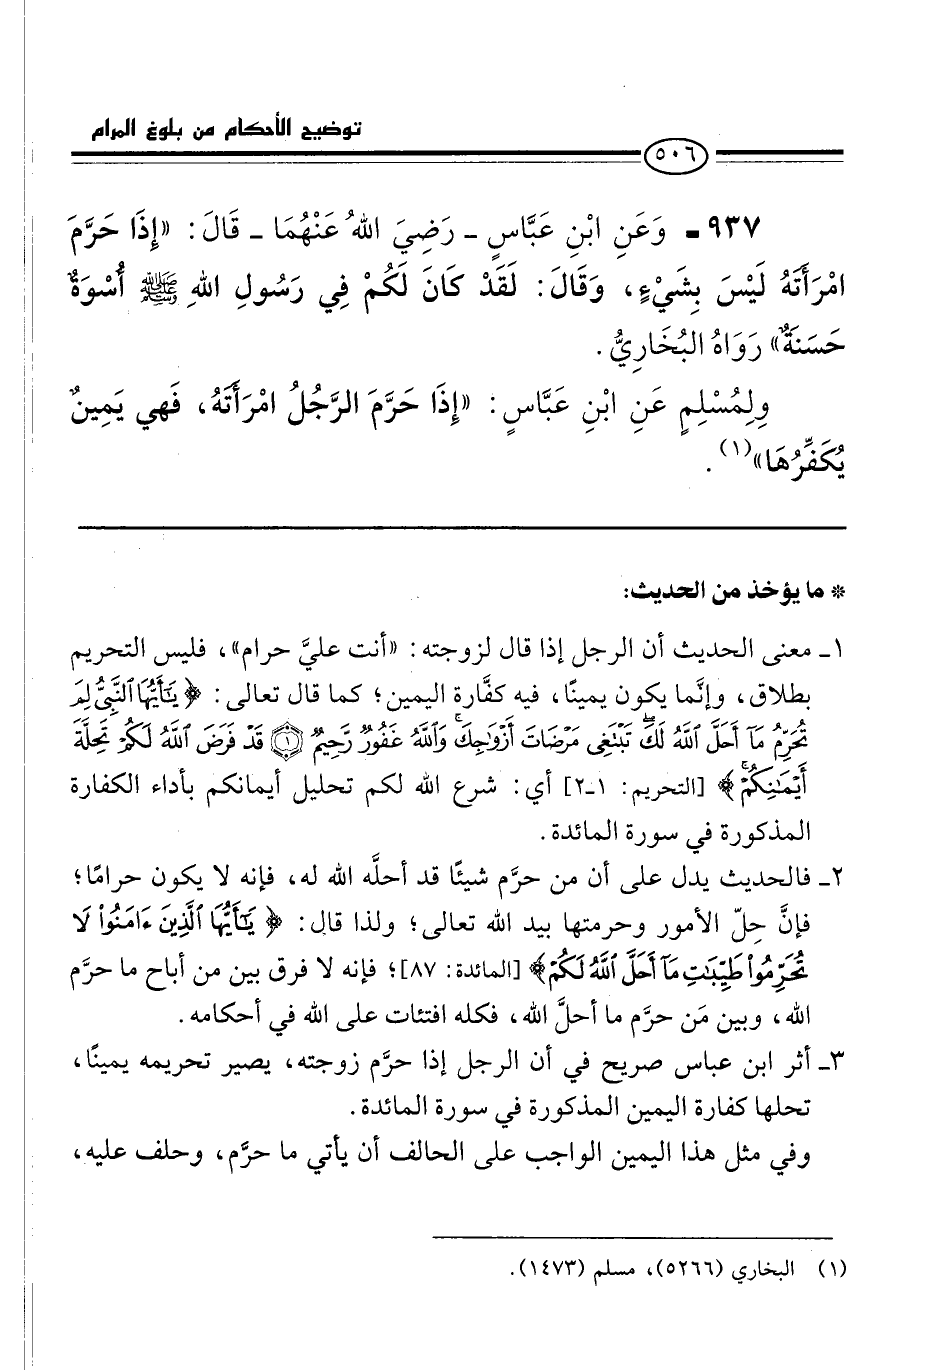 توضيح الأحكام من بلوغ المرام
٥٠٦
٩٣٧ - وَعَنِ ابْنِ عَبَّاسٍ - رَضِيَ اللهُ عَنْهُمَا - قَالَ: «إِذَا حَرَّمَ
امْرَأَتَهُ لَيْسَ بِشَيْءٍ، وَقَالَ: لَقَدْ كَانَ لَكُمْ فِي رَسُولِ اللهِ ﷺ أُسْوَةٌ
حَسَنَةٌ» رَوَاهُ البُخَارِيُّ.
وِلِمُسْلِمٍ عَنِ ابْنِ عَبَّاسٍ: «إِذَا حَرَّمَ الرَّجُلُ امْرَأَتَهُ، فَهي يَمِينٌ
يُكَفِّرُهَا»(١).
* ما يؤخذ من الحديث:
١- معنى الحديث أن الرجل إذا قال لزوجته: «أنت عليَّ حرام»، فليس التحريم
بطلاق، وإنَّما يكون يمينًا، فيه كفَّارة اليمين؛ كما قال تعالى: ﴿يَٰٓأَيُّهَا ٱلنَّبِيُّ لِمَ
تُحَرِّمُ مَآ أَحَلَّ ٱللَّهُ لَكَۖ تَبْتَغِى مَرْضَاتَ أَزْوَٰجِكَۚ وَٱللَّهُ غَفُورٌ رَّحِيمٌ ۝١ قَدْ فَرَضَ ٱللَّهُ لَكُمْ تَحِلَّةَ
أَيْمَٰنِكُمْۚ﴾ [التحريم: ١-٢] أي: شرع الله لكم تحليل أيمانكم بأداء الكفارة
المذكورة في سورة المائدة.
٢- فالحديث يدل على أن من حرَّم شيئًا قد أحلَّه الله له، فإنه لا يكون حرامًا؛
فإنَّ حِلّ الأمور وحرمتها بيد الله تعالى؛ ولذا قال: ﴿يَٰٓأَيُّهَا ٱلَّذِينَ ءَامَنُوا۟ لَا
تُحَرِّمُوا۟ طَيِّبَٰتِ مَآ أَحَلَّ ٱللَّهُ لَكُمْ﴾ [المائدة: ٨٧]؛ فإنه لا فرق بين من أباح ما حرَّم
الله، وبين مَن حرَّم ما أحلَّ الله، فكله افتئات على الله في أحكامه.
٣- أثر ابن عباس صريح في أن الرجل إذا حرَّم زوجته، يصير تحريمه يمينًا،
تحلها كفارة اليمين المذكورة في سورة المائدة.
وفي مثل هذا اليمين الواجب على الحالف أن يأتي ما حرَّم، وحلف عليه،
(١) البخاري (٥٢٦٦)، مسلم (١٤٧٣).